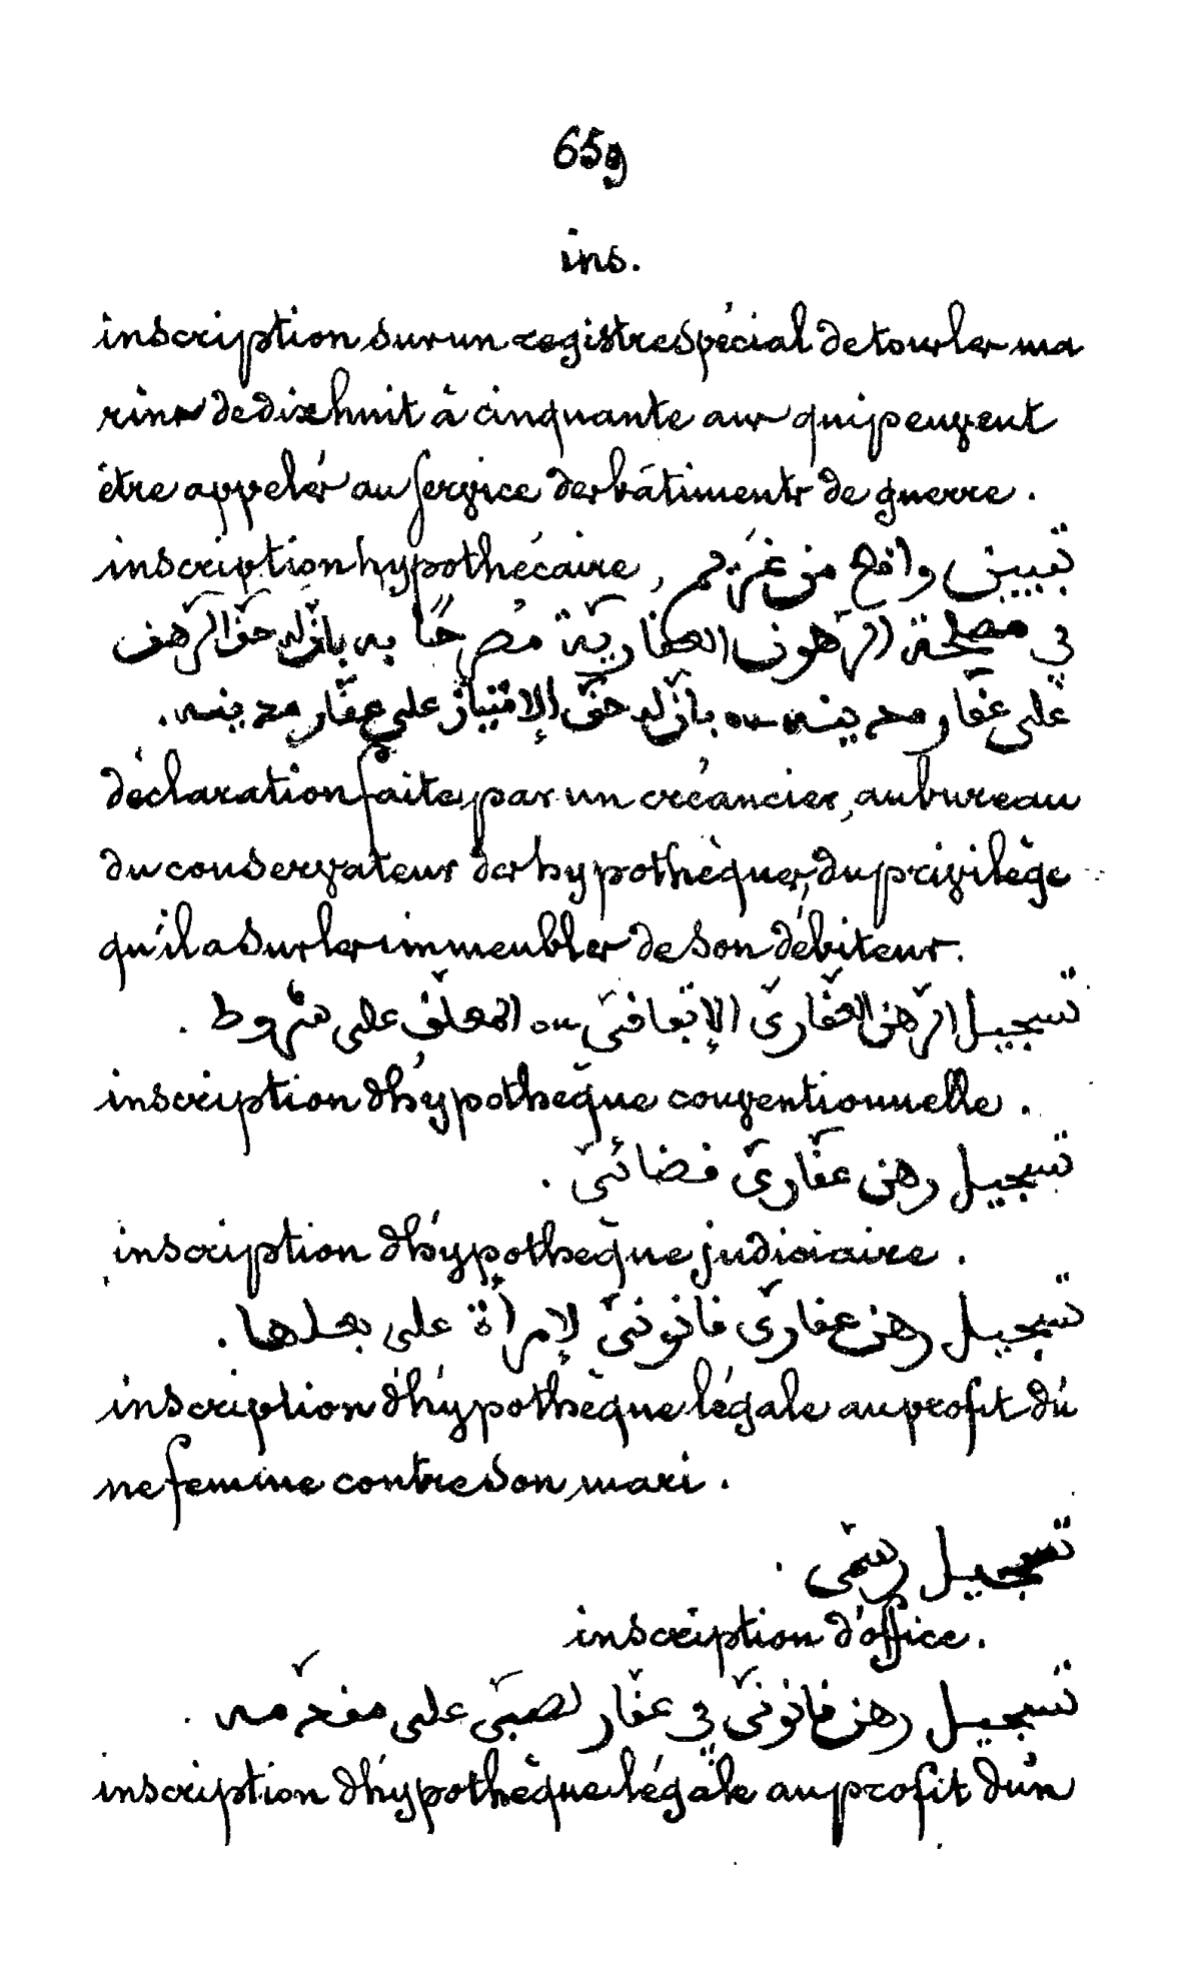 659
ins.
inscription sur un registre spécial de tous les ma
rins de dix huit à cinquante ans qui peuvent
être appelés au service des bâtiments de guerre.
inscription hypothécaire, تبيين واقع من غريم
في مصلحة الرّهون العقاريّة مُصرحًا به بانّ له حقّ الرّهن
على عقار مدينه ou بانّ له حقّ الإمتياز على عقار مدينه.
déclaration faite, par un créancier, au bureau
du conservateur des hypothèques, du privilège
qu'il a sur les immeubles de son débiteur.
تسجيل الرّهن العقاريّ الإتفاقيّ ou المعلّق على شروط.
inscription d'hypothèque conventionnelle.
تسجيل رهن عقاريّ قضائيّ.
inscription d'hypothèque judiciaire.
تسجيل رهن عقاريّ قانونيّ لإمرأة على بعلها.
inscription d'hypothèque légale au profit d'u
ne femme contre son mari.
تسجيل رسميّ.
inscription d'office.
تسجيل رهن قانونيّ في عقار لصبيّ على مقدّمه.
inscription d'hypothèque légale au profit d'un